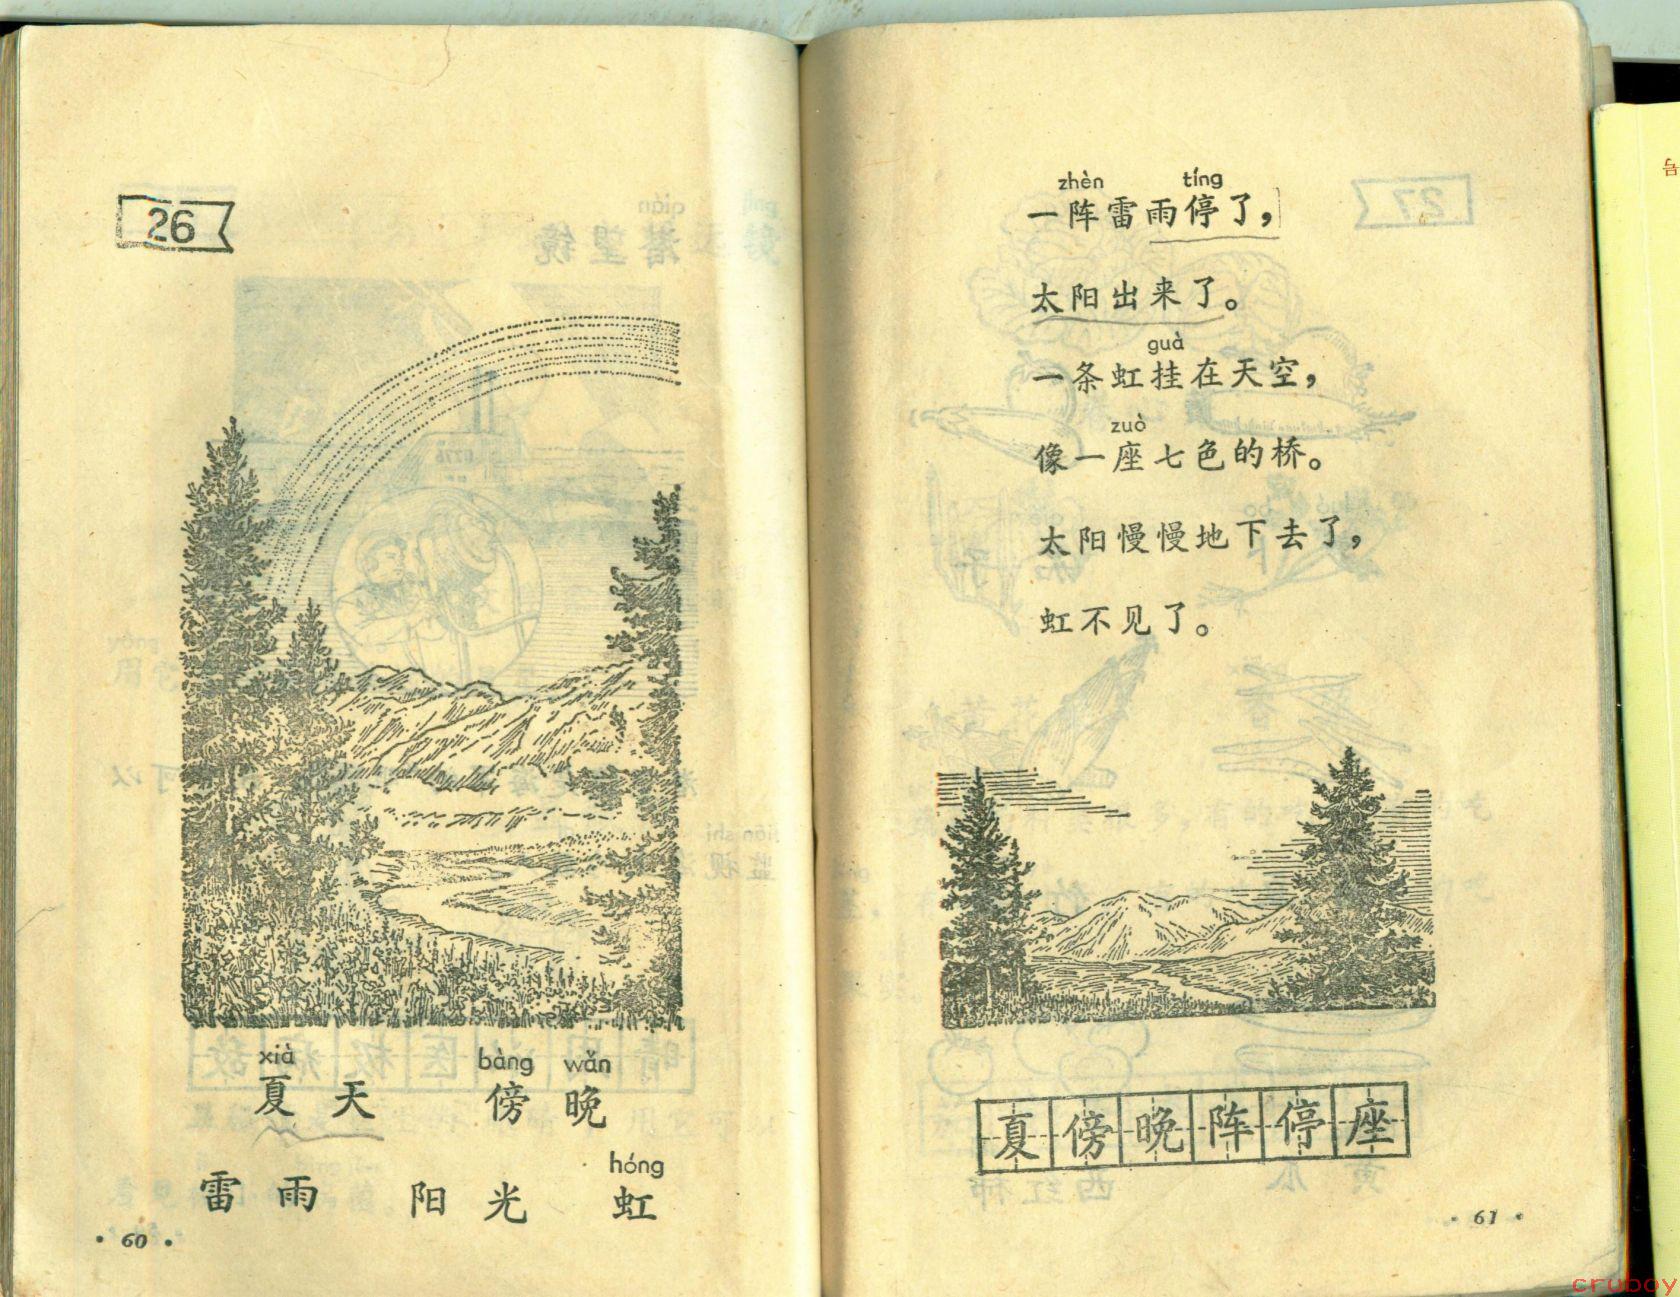 26
xià bàng wǎn
夏天 傍晚
hóng
雷雨 阳光 虹
· 60 ·
zhèn tíng
一阵雷雨停了，
太阳出来了。
guà
一条虹挂在天空，
zuò
像一座七色的桥。
太阳慢慢地下去了，
虹不见了。
夏傍晚阵停座
· 61 ·
cruboy